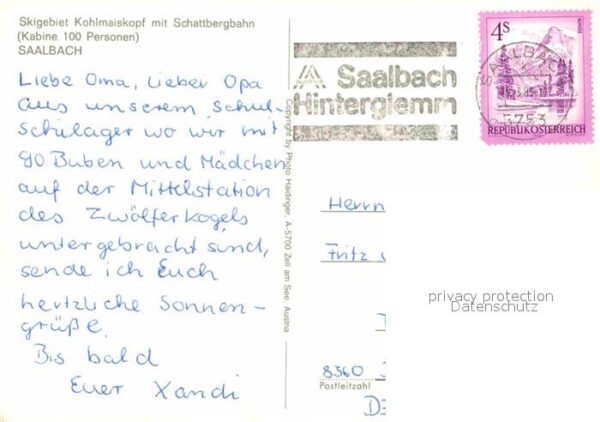 Skigebiet Kohlmaiskopf mit Schattbergbahn
(Kabine 100 Personen)
SAALBACH
Liebe Oma, lieber Opa
aus unserem Schul-
schulager wo wir mit
90 Buben und Mädchen
auf der Mittelstation
des Zwölferkogels
untergebracht sind,
sende ich Euch
hertzliche Sonnen-
grüße.
Bis bald
Euer Xandi
Copyright by Photo Haidinger, A-5700 Zell am See, Austria
Saalbach
Hinterglemm
4S
SAALBACH
5753
REPUBLIK ÖSTERREICH
Herrn
Fritz
privacy protection
Datenschutz
8360
Postleitzahl